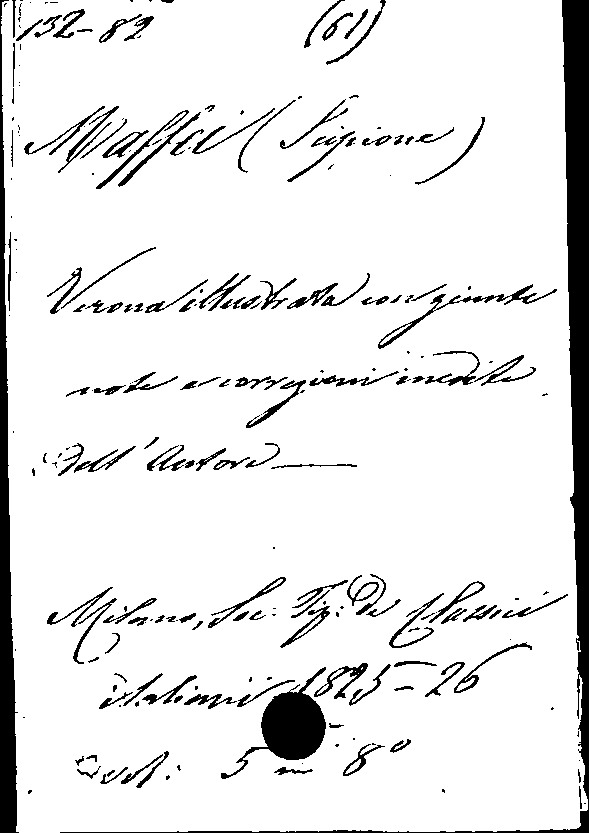 132-82 (61)
Maffei (Scipione)
Verona illustrata con giunte
note e correzioni inedite
dell'Autore —
Milano, Soc. Tip: de Classici
italiani 1825-26
vol: 5 in 8º